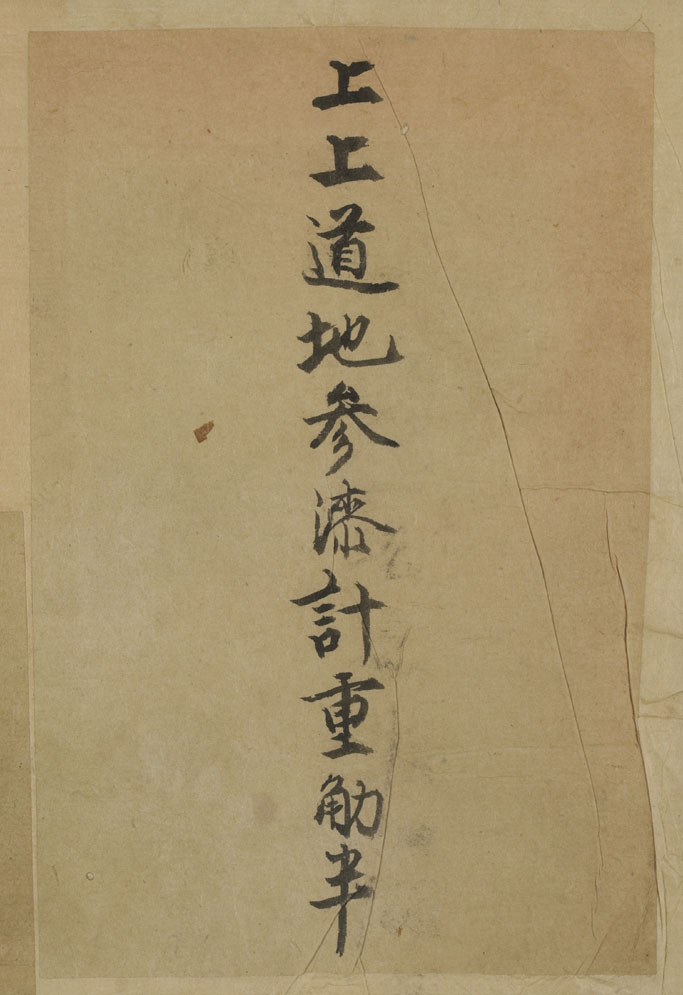 上上道地參漆計重觔半